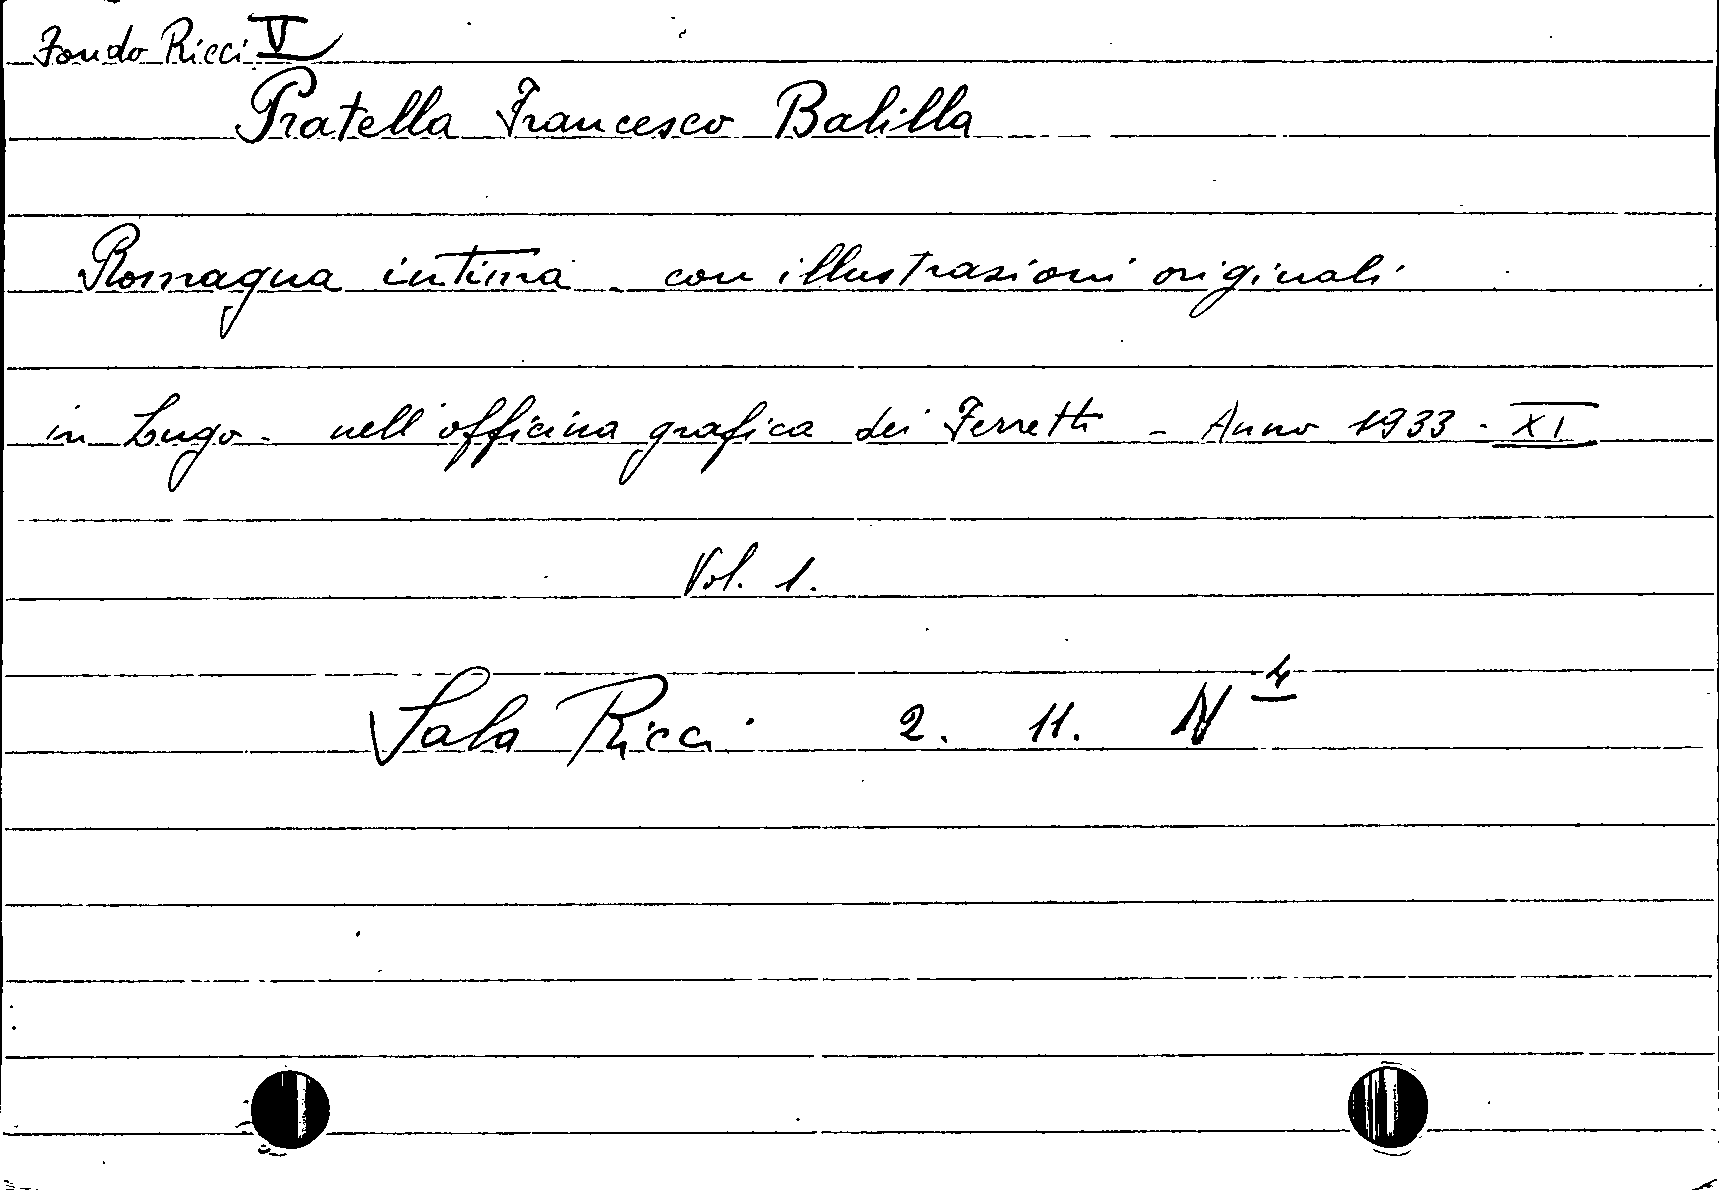 Fondo Ricci V
Pratella Francesco Balilla
Romagna intima - con illustrazioni originali
in Lugo - nell'officina grafica dei Ferretti - Anno 1933 - XI
Vol. 1.
Sala Ricci 2. 11. N 4